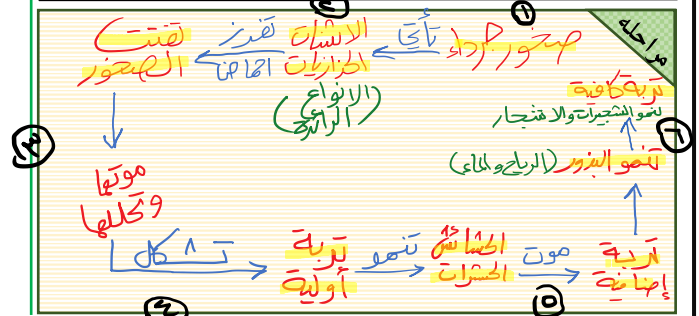 مراحله
١
صخور جرداء
تأتي
٢
الاشنات
الحزازيات
(الانواع
الرائدة)
تفرز
احماضا
تفتت
الصخور
٣
موتها
وتحللها
تشكل
٤
تربة
أولية
تنمو
الحشائش
الحشرات
موت
٥
تربة
إضافية
تنمو البذور (الرياح والماء)
٦
تربة كافية
لنمو الشجيرات والاشجار